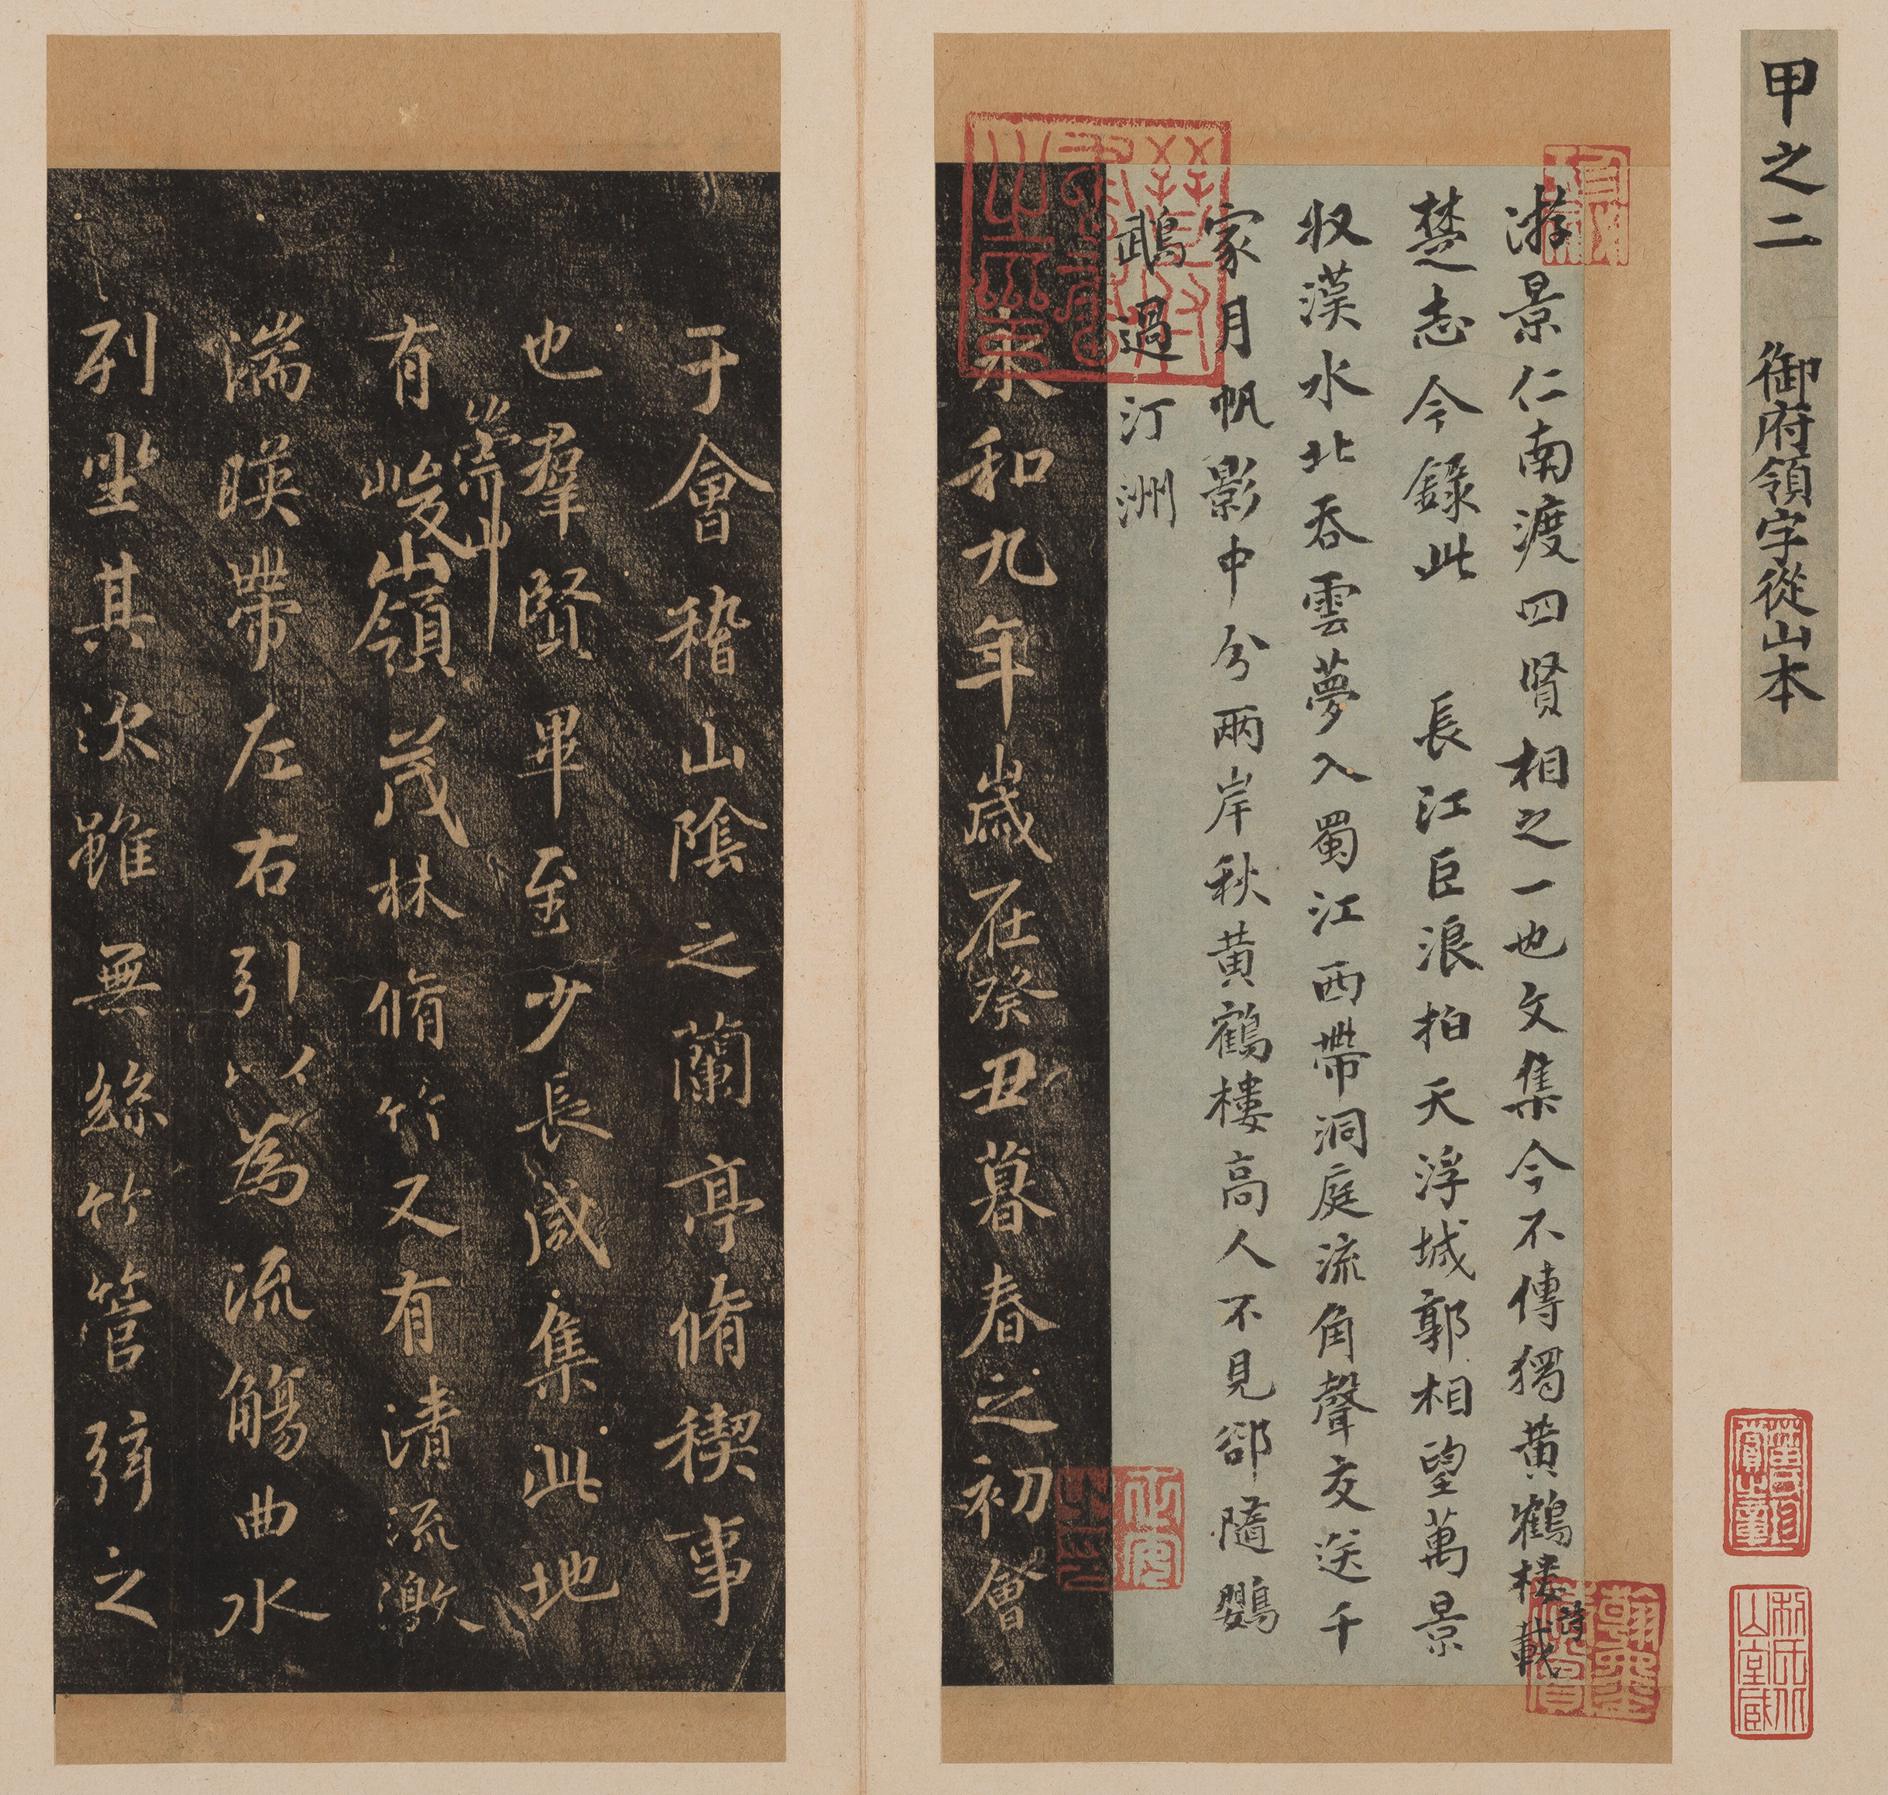 甲之二 御府領字從山本
游景仁南渡四賢相之一也文集今不傳獨黄鶴樓詩載
楚志今錄此 長江巨浪拍天浮城郭相望萬景
収漢水北吞雲夢入蜀江西帶洞庭流角聲交送千
家月帆影中分兩岸秋黄鶴樓高人不見郤隨鸚
鵡過汀洲
永和九年嵗在癸丑暮春之初會
于會稽山陰之蘭亭脩稧事
也羣賢畢至少長咸集此地
有崇山峻領茂林脩竹又有清流激
湍暎帶左右引以為流觴曲水
列坐其次雖無絲竹管弦之